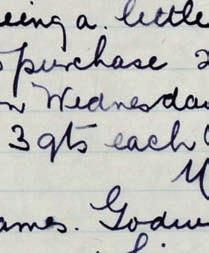 being a little
purchase 2
on Wednesday
3 qts each
M
James. Godw